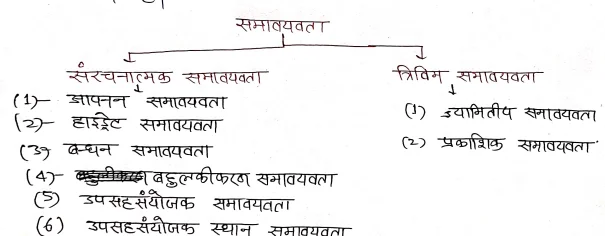 समावयवता
संरचनात्मक समावयवता
त्रिविम समावयवता
(1)- आयनन समावयवता
(1) ज्यामितीय समावयवता
(2)- हाइड्रेट समावयवता
(2) प्रकाशिक समावयवता
(3) बन्धन समावयवता
(4)- बहुलकीकरण समावयवता
(5) उपसहसंयोजक समावयवता
(6) उपसहसंयोजक स्थान समावयवता